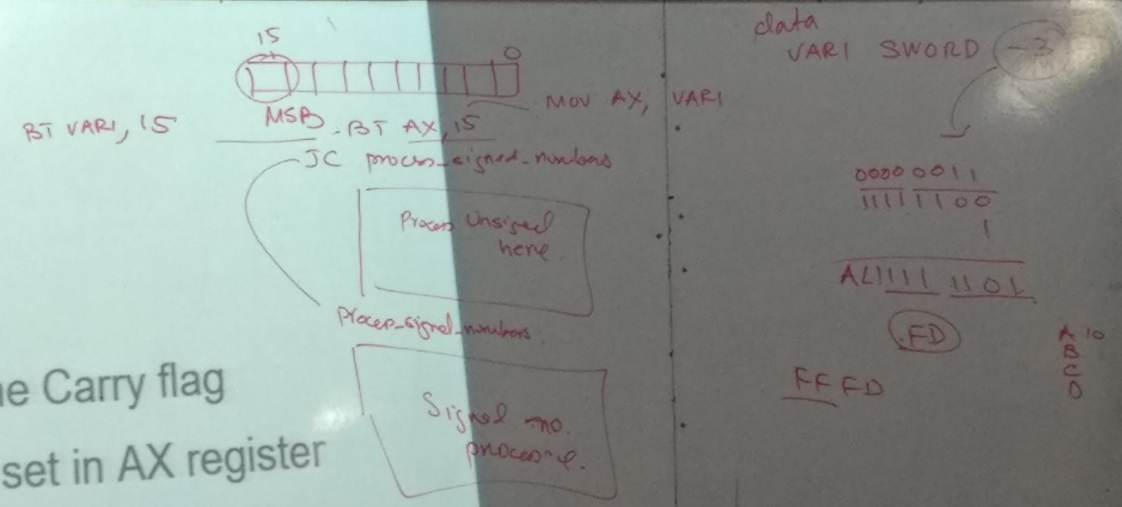 15
0
MOV AX, VAR1
BT VAR1, 15
MSB
BT AX, 15
JC process_signed_numbers
Process Unsigned
here
Process_signed_numbers
Signed no.
processing.
he Carry flag
set in AX register
data
VAR1 SWORD -3
00000011
11111100
1
AL 1111 1101
FD
FFFD
A 10
B
C
D